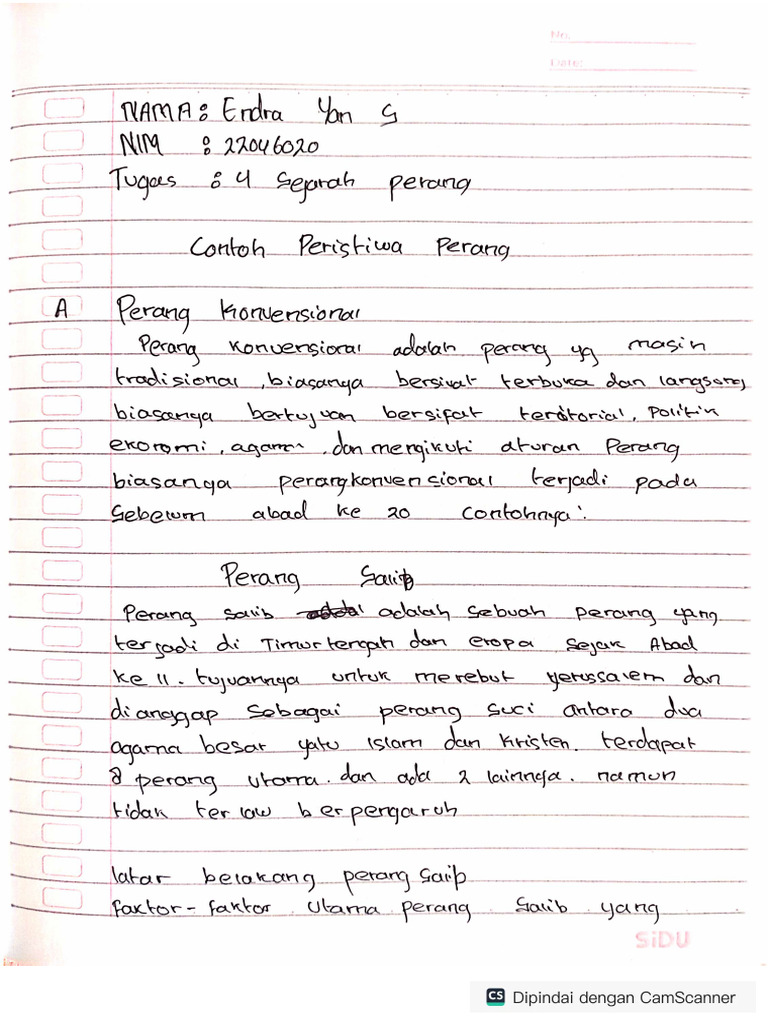 No.
Date:
NAMA : Endra Yan S
NIM : 22046020
Tugas : 4 Sejarah perang
Contoh Peristiwa Perang
A Perang Konvensional
Perang konvensional adalah perang yg masih
tradisional, biasanya bersivat terbuka dan langsong,
biasanya bertujuan bersifat teritorial, Politik
ekonomi, agama, dan mengikuti aturan Perang
biasanya perangkonvensional terjadi pada
Sebelum abad ke 20 contohnya:
Perang Salib
Perang salib adalah sebuah perang yang
terjadi di Timurtengah dan eropa sejak Abad
ke 11. tujuannya untuk merebut yerussalem dan
di anggap sebagai perang suci antara dua
agama besar yatu Islam dan Kristen. terdapat
8 perang utama. dan ada 2 lainnya. namun
tidak ter law berpengaruh
latar belakang perang Salib
faktor-faktor utama perang salib yang
SiDU
CS Dipindai dengan CamScanner